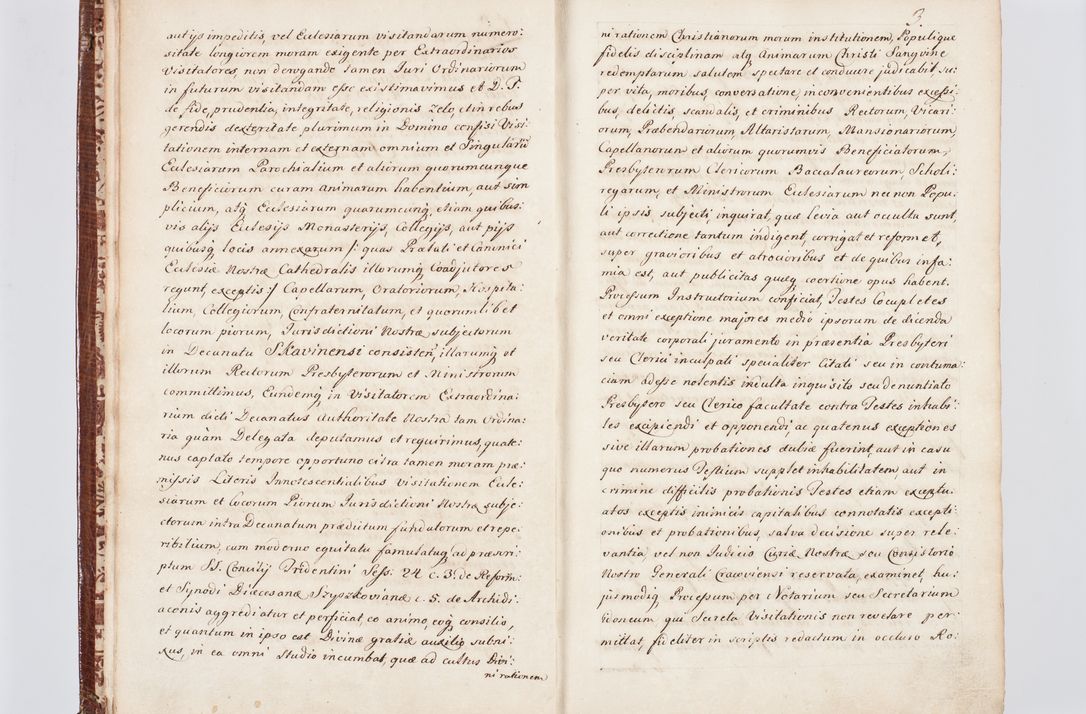 autijs impeditis, vel Ecclesiarum visitandarum numero:
sitate longiorem moram exigente per Extraordinarios
Visitatores, non derogando tamen Juri Ordinariorum
in futurum visitandam esse existimavimus et D. T.
de fide, prudentia, integritate, religionis zelo, et in rebus
gerendis dexteritate plurimum in Domino confisi Visi:
tationem internam et externam omnium et Singularũ
Ecclesiarum Parochialium et aliorum quorumcunque
Beneficiorum curam animarum habentium, aut sim
plicium, atq Ecclesiarum quarumcunq, etiam quibus:
vis alijs Ecclesijs Monasterijs, Collegijs, aut pijs
quibusq locis annexarum /: quas Prælati et Canonici
Ecclesiæ Nostræ Cathedralis illorumq Coadjutores
regunt, exceptis :/ Capellarum, Oratoriorum, Hospita:
lium, Collegiorum, Confraternitatum, et quorumlibet
locorum piorum, Jurisdictioni Nostræ subjectorum
in Decanatu Skavinensi consisteñ, illarumq et
illorum Rectorum Presbyterorum et Ministrorum
committimus, Eundemq in Visitatorem Extraordina:
rium dicti Decanatus Authoritate Nostra tam Ordina:
ria quàm Delegata deputamus et requirimus, quate:
nus captato tempore opportuno citra tamen moram præ:
missis Literis Innotescentialibus visitationem Eccle:
siarum et Locorum Piorum Jurisdictioni Nostræ subje:
ctorum intra Decanatum prædictum fundatorum et repe:
ribilium, cum moderno equitatu famulatuq ad præscri:
ptum SS. Concilij Tridentini Sess. 24 c. 3. de Reform:
et Synodi Diœcesanæ Szyszkovianæ c. 5. de Archidi:
aconis aggrediatur et perficiat, eo animo, eoq consilio,
et quantum in ipso est Divinæ gratiæ auxilio subni:
xus, in ea omni studio incumbat, quæ ad cultus Divi:
ni rationem
3.
ni rationem Christianorum morum institutionem, Populique
fidelis disciplinam atq Animarum Christi Sangvine
redemptarum salutem spectare et conducere judicabit, su:
per vita, moribus, conversatione, inconvenientibus excessi:
bus, delictis, scandalis, et criminibus Rectorum, Vicari:
orum, Præbendariorum, Altaristarum, Mansionariorum,
Capellanorum et aliorum quorumvis Beneficiatorum,
Presbyterorum Clericorum Baccalaureorum, Scholi:
regarum, et Ministrorum Ecclesiarum nec non Popu:
li ipsis subjecti, inquirat, quæ levia aut occulta sunt,
aut correctione tantum indigent, corrigat et reformet,
super gravioribus et atrocioribus et de quibus infa:
mia est, aut publicitas quæq coertione opus habent.
Processum Instructorium conficiat, Testes locupletes
et omni exceptione majores medio ipsorum de dicenda
veritate corporali juramento in præsentia Presbyteri
seu Clerici inculpati specialiter Citati seu in contuma:
ciam adesse nolentis indulta inquisito seu denuntiato
Presbytero seu Clerico facultate contra Testes inhabi:
les excipiendi et opponendi, ac quatenus exceptiones
sive illarum probationes dubiæ fuerint, aut in casu
quo numerus Testium supplet inhabilitatem, aut in
crimine difficilis probationis Testes etiam exceptu:
atos exceptis inimicis capitalibus connotatis excepti:
onibus et probationibus, salva decisione super rele:
vantia, vel non Judicio Curiæ Nostræ seu Consistorio
Nostro Generali Cracoviensi reservata, examinet, hu:
jusmodiq Processum per Notarium seu Secretarium
idoneum qui Secreta Visitationis non revelare per:
mittat, fideliter in scriptis redactum in occluso Ro: